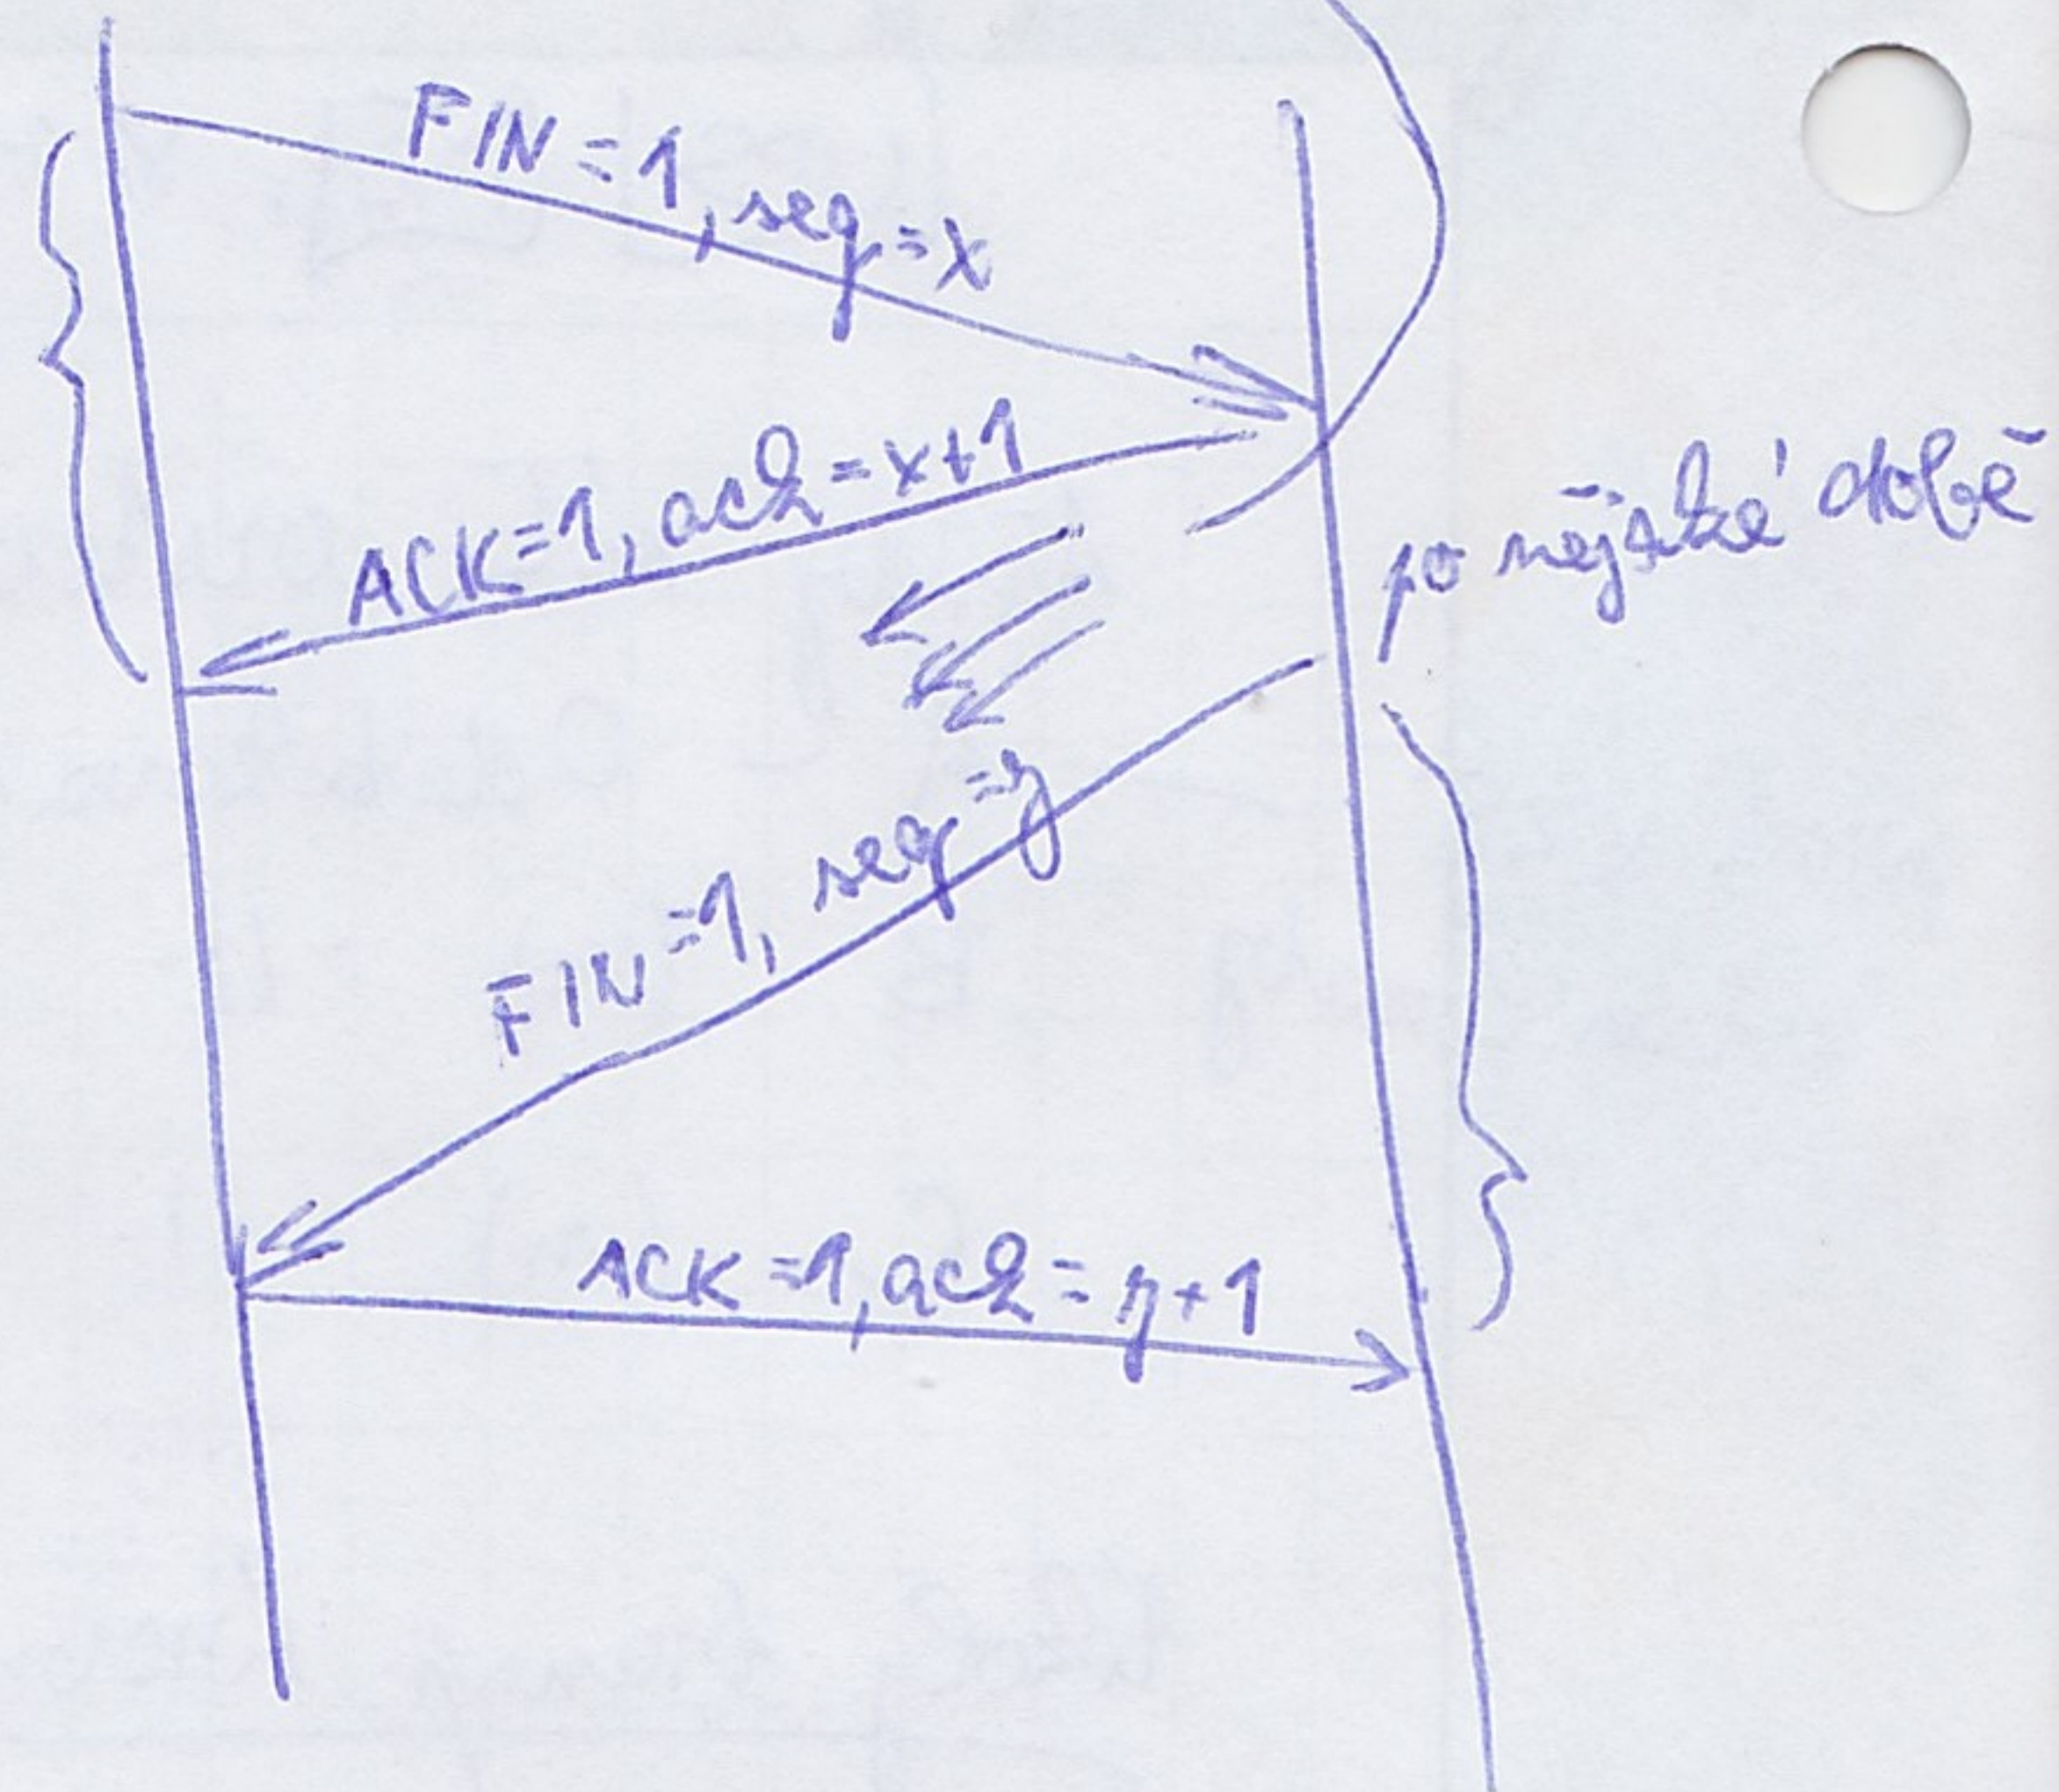 FIN=1, seq=x
ACK=1, ack=x+1
po nějaké době
FIN=1, seq=y
ACK=1, ack=y+1